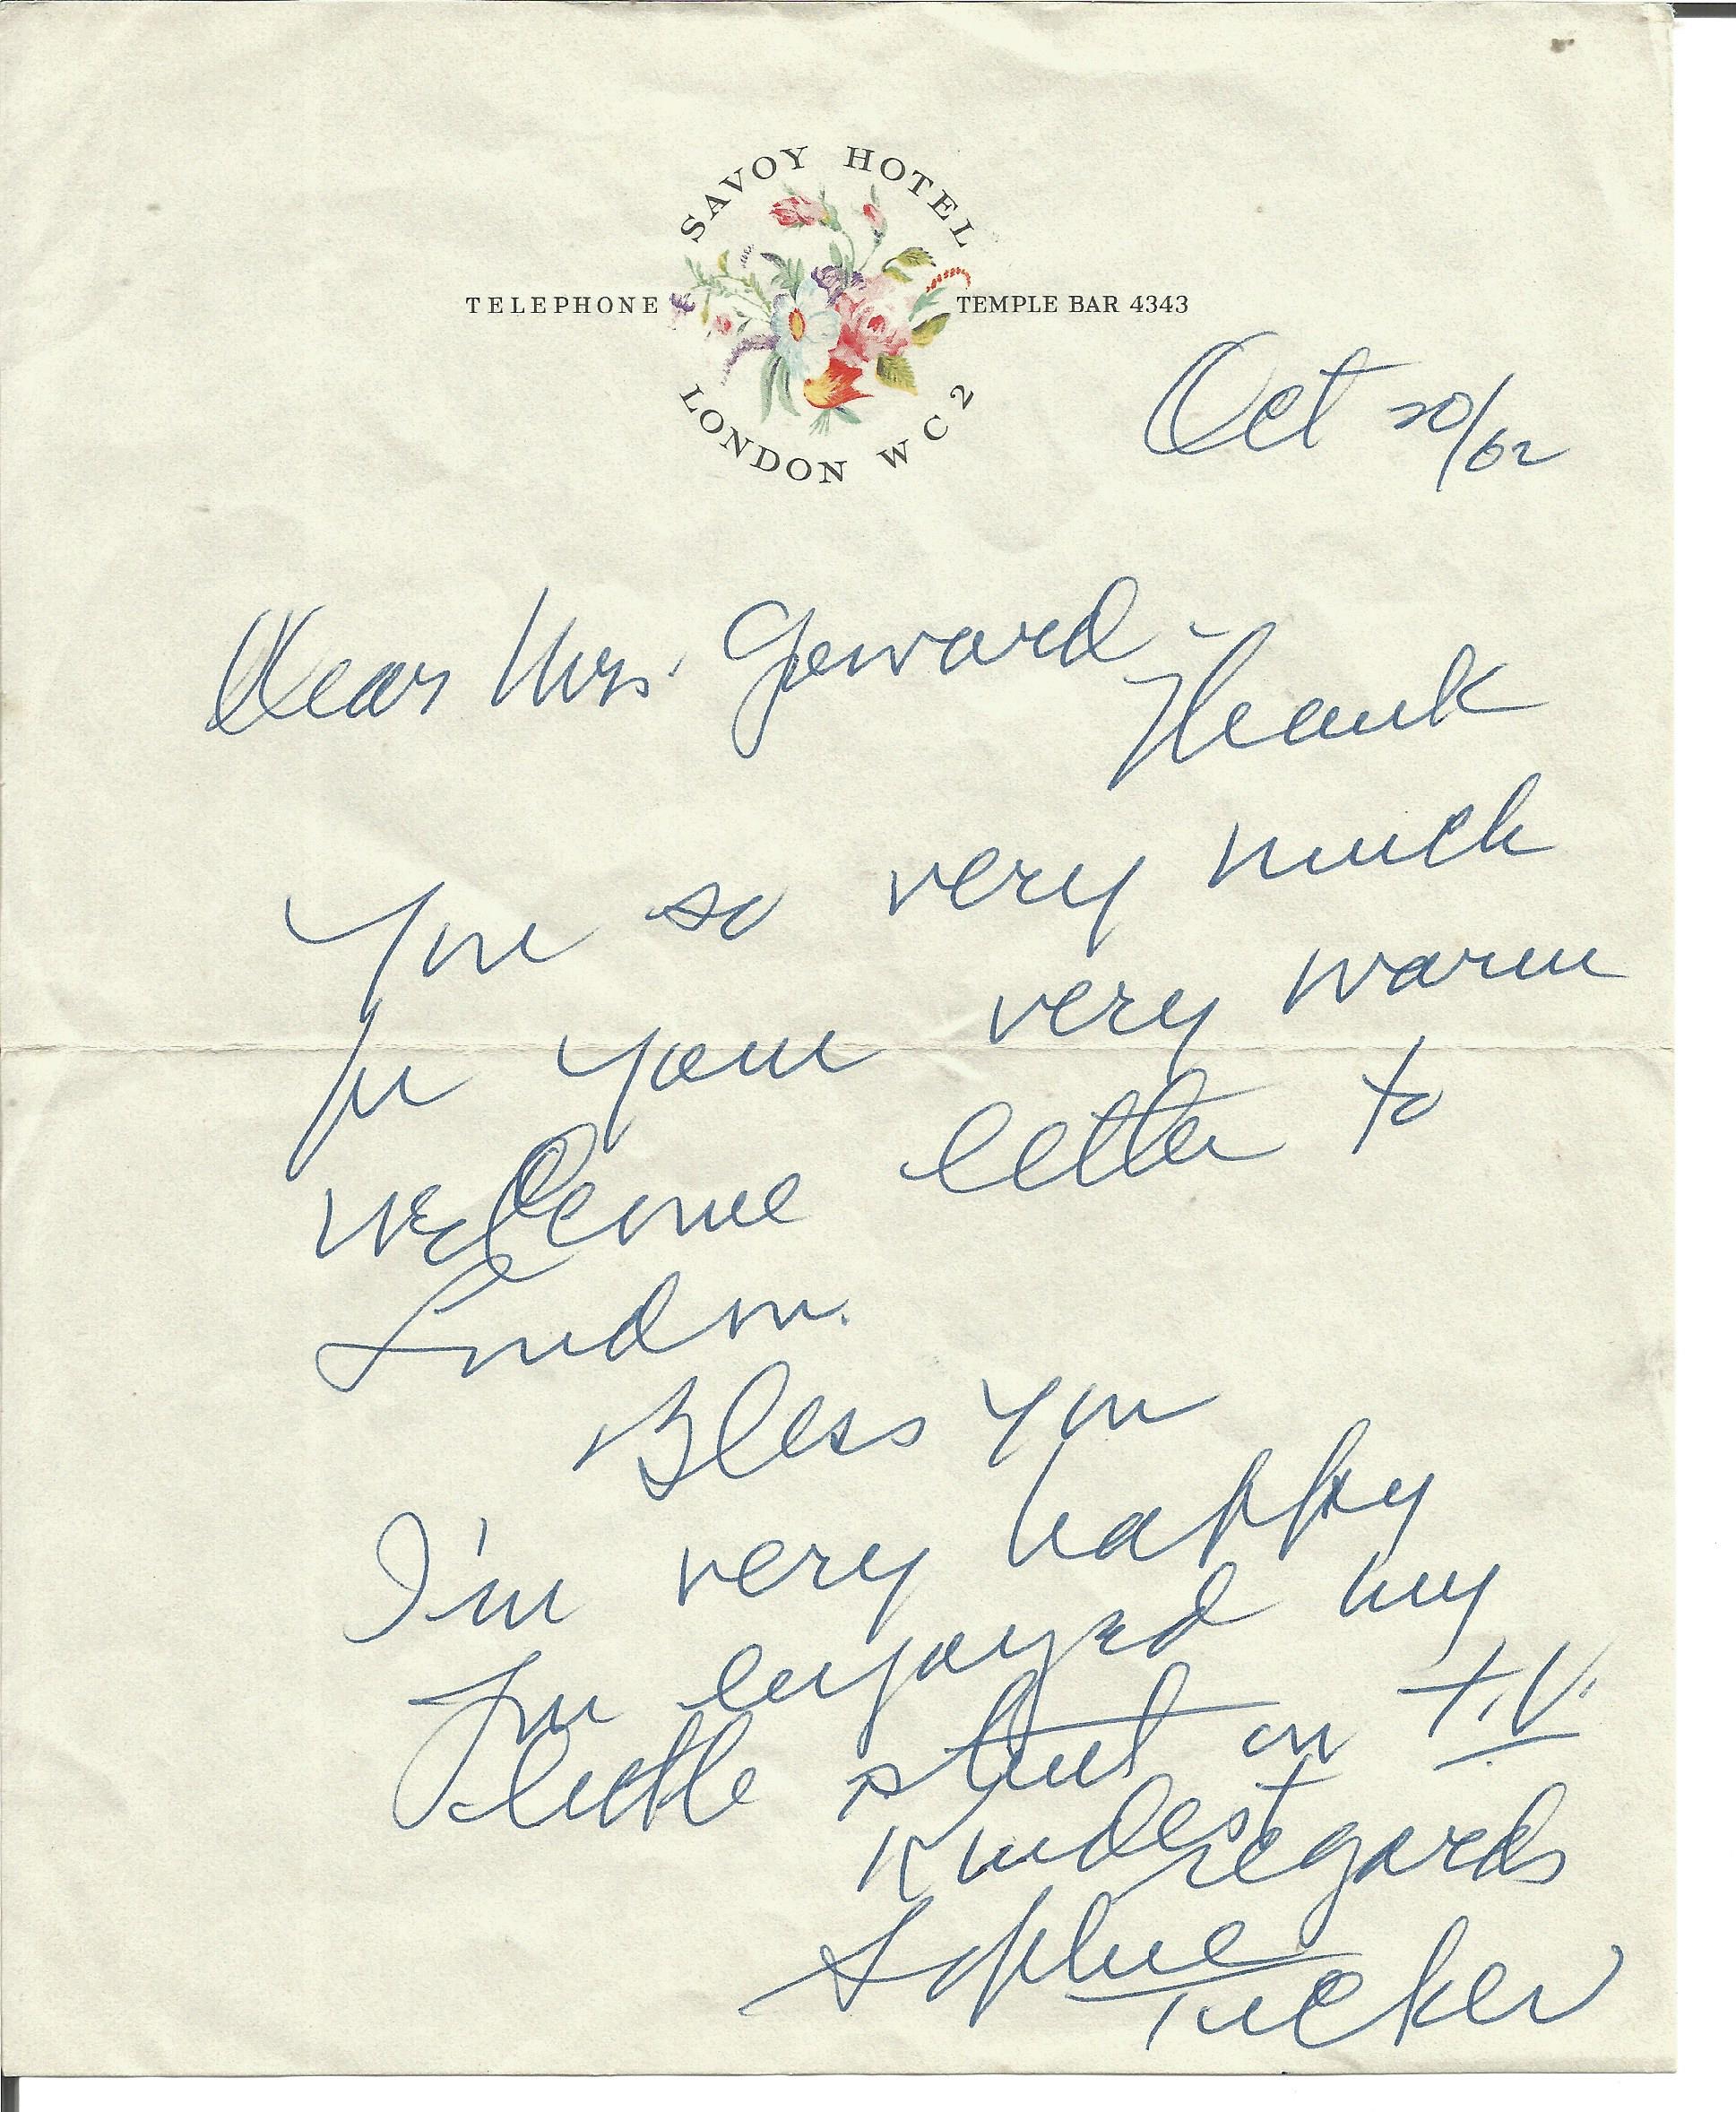 SAVOY HOTEL
TELEPHONE TEMPLE BAR 4343
LONDON WC2
Oct 20/62
Dear Mrs. Goward -
Thank
You so very much
for your very warm
welcome letter to
London.
Bless you
I'm very happy
You enjoyed my
little stint on T.V.
Kindest
regards
Sophie
Tucker